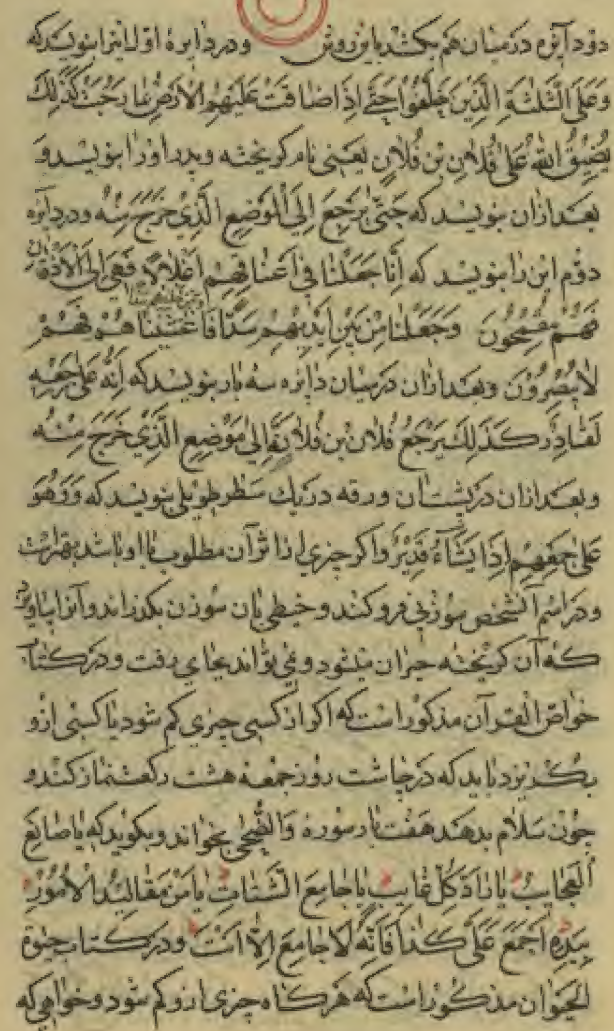 دو دایره در میان هم بکشد باین روش و در دایرهٔ اول اینرا بنویسد که
وَعَلَی الثَّلٰثَةِ الَّذِینَ خُلِّفُوا حَتّٰی اِذَا ضَاقَتْ عَلَیْهِمُ الْاَرْضُ بِمَا رَحُبَتْ کَذٰلِکَ
یُضَیِّقُ اللّٰهُ عَلٰی فُلَانِ بْنِ فُلَانٍ یعنی نام کریخته و پدر او را بنویسد و
بعد ازان بنویسد که حَتّٰی یَرْجِعَ اِلَی الْمَوْضِعِ الَّذِی خَرَجَ مِنْهُ و در دایره
دوّم این را بنویسد که اِنَّا جَعَلْنَا فِی اَعْنَاقِهِمْ اَغْلَالًا فَهِیَ اِلَی الْاَذْقَانِ
فَهُمْ مُقْمَحُونَ وَجَعَلْنَا مِنْ بَیْنِ اَیْدِیهِمْ سَدًّا وَمِنْ خَلْفِهِمْ سَدًّا فَاَغْشَیْنَاهُمْ فَهُمْ
لَا یُبْصِرُونَ و بعد ازان در میان دایره سه بار بنویسد که اِنَّهُ عَلٰی رَجْعِهِ
لَقَادِرٌ کَذٰلِکَ یَرْجِعُ فُلَانُ بْنُ فُلَانَةَ اِلٰی مَوْضِعِ الَّذِی خَرَجَ مِنْهُ
و بعد ازان در پشت آن ورقه در یک سطر طویلی بنویسد که وَهُوَ
عَلٰی جَمْعِهِمْ اِذَا یَشَآءُ قَدِیرٌ و اکر چیزی از اثر آن مطلوب با او باشد بهتر است
و در اسم آن شخص سوزنی فرو کند و خیطی بان سوزن بکذراند و آنرا
که آن کریخته حیران میشود و نمی تواند بجای رفت و در کتاب
خواصّ القرآن مذکور است که اکر از کسی چیزی کم شود یا کسی ازو
بکریزد باید که در چاشت روز جمعه هشت رکعت نماز کند و
چون سلام بدهد هفت بار سوره وَالضُّحٰی بخواند و بکوید که یَا صَانِعَ
الْعَجَایِبِ یَا رَادَّ کُلِّ غَایِبٍ یَا جَامِعَ الشَّتَاتِ یَا مَنْ مَقَالِیدُ الْاُمُورِ
بِیَدِهِ اَجْمِعْ عَلَیَّ کَذَا فَاِنَّهُ لَا جَامِعَ اِلَّا اَنْتَ و در کتاب حیوة
الحیوان مذکور است که هرکاه چیزی ازو کم شود و خواهی که